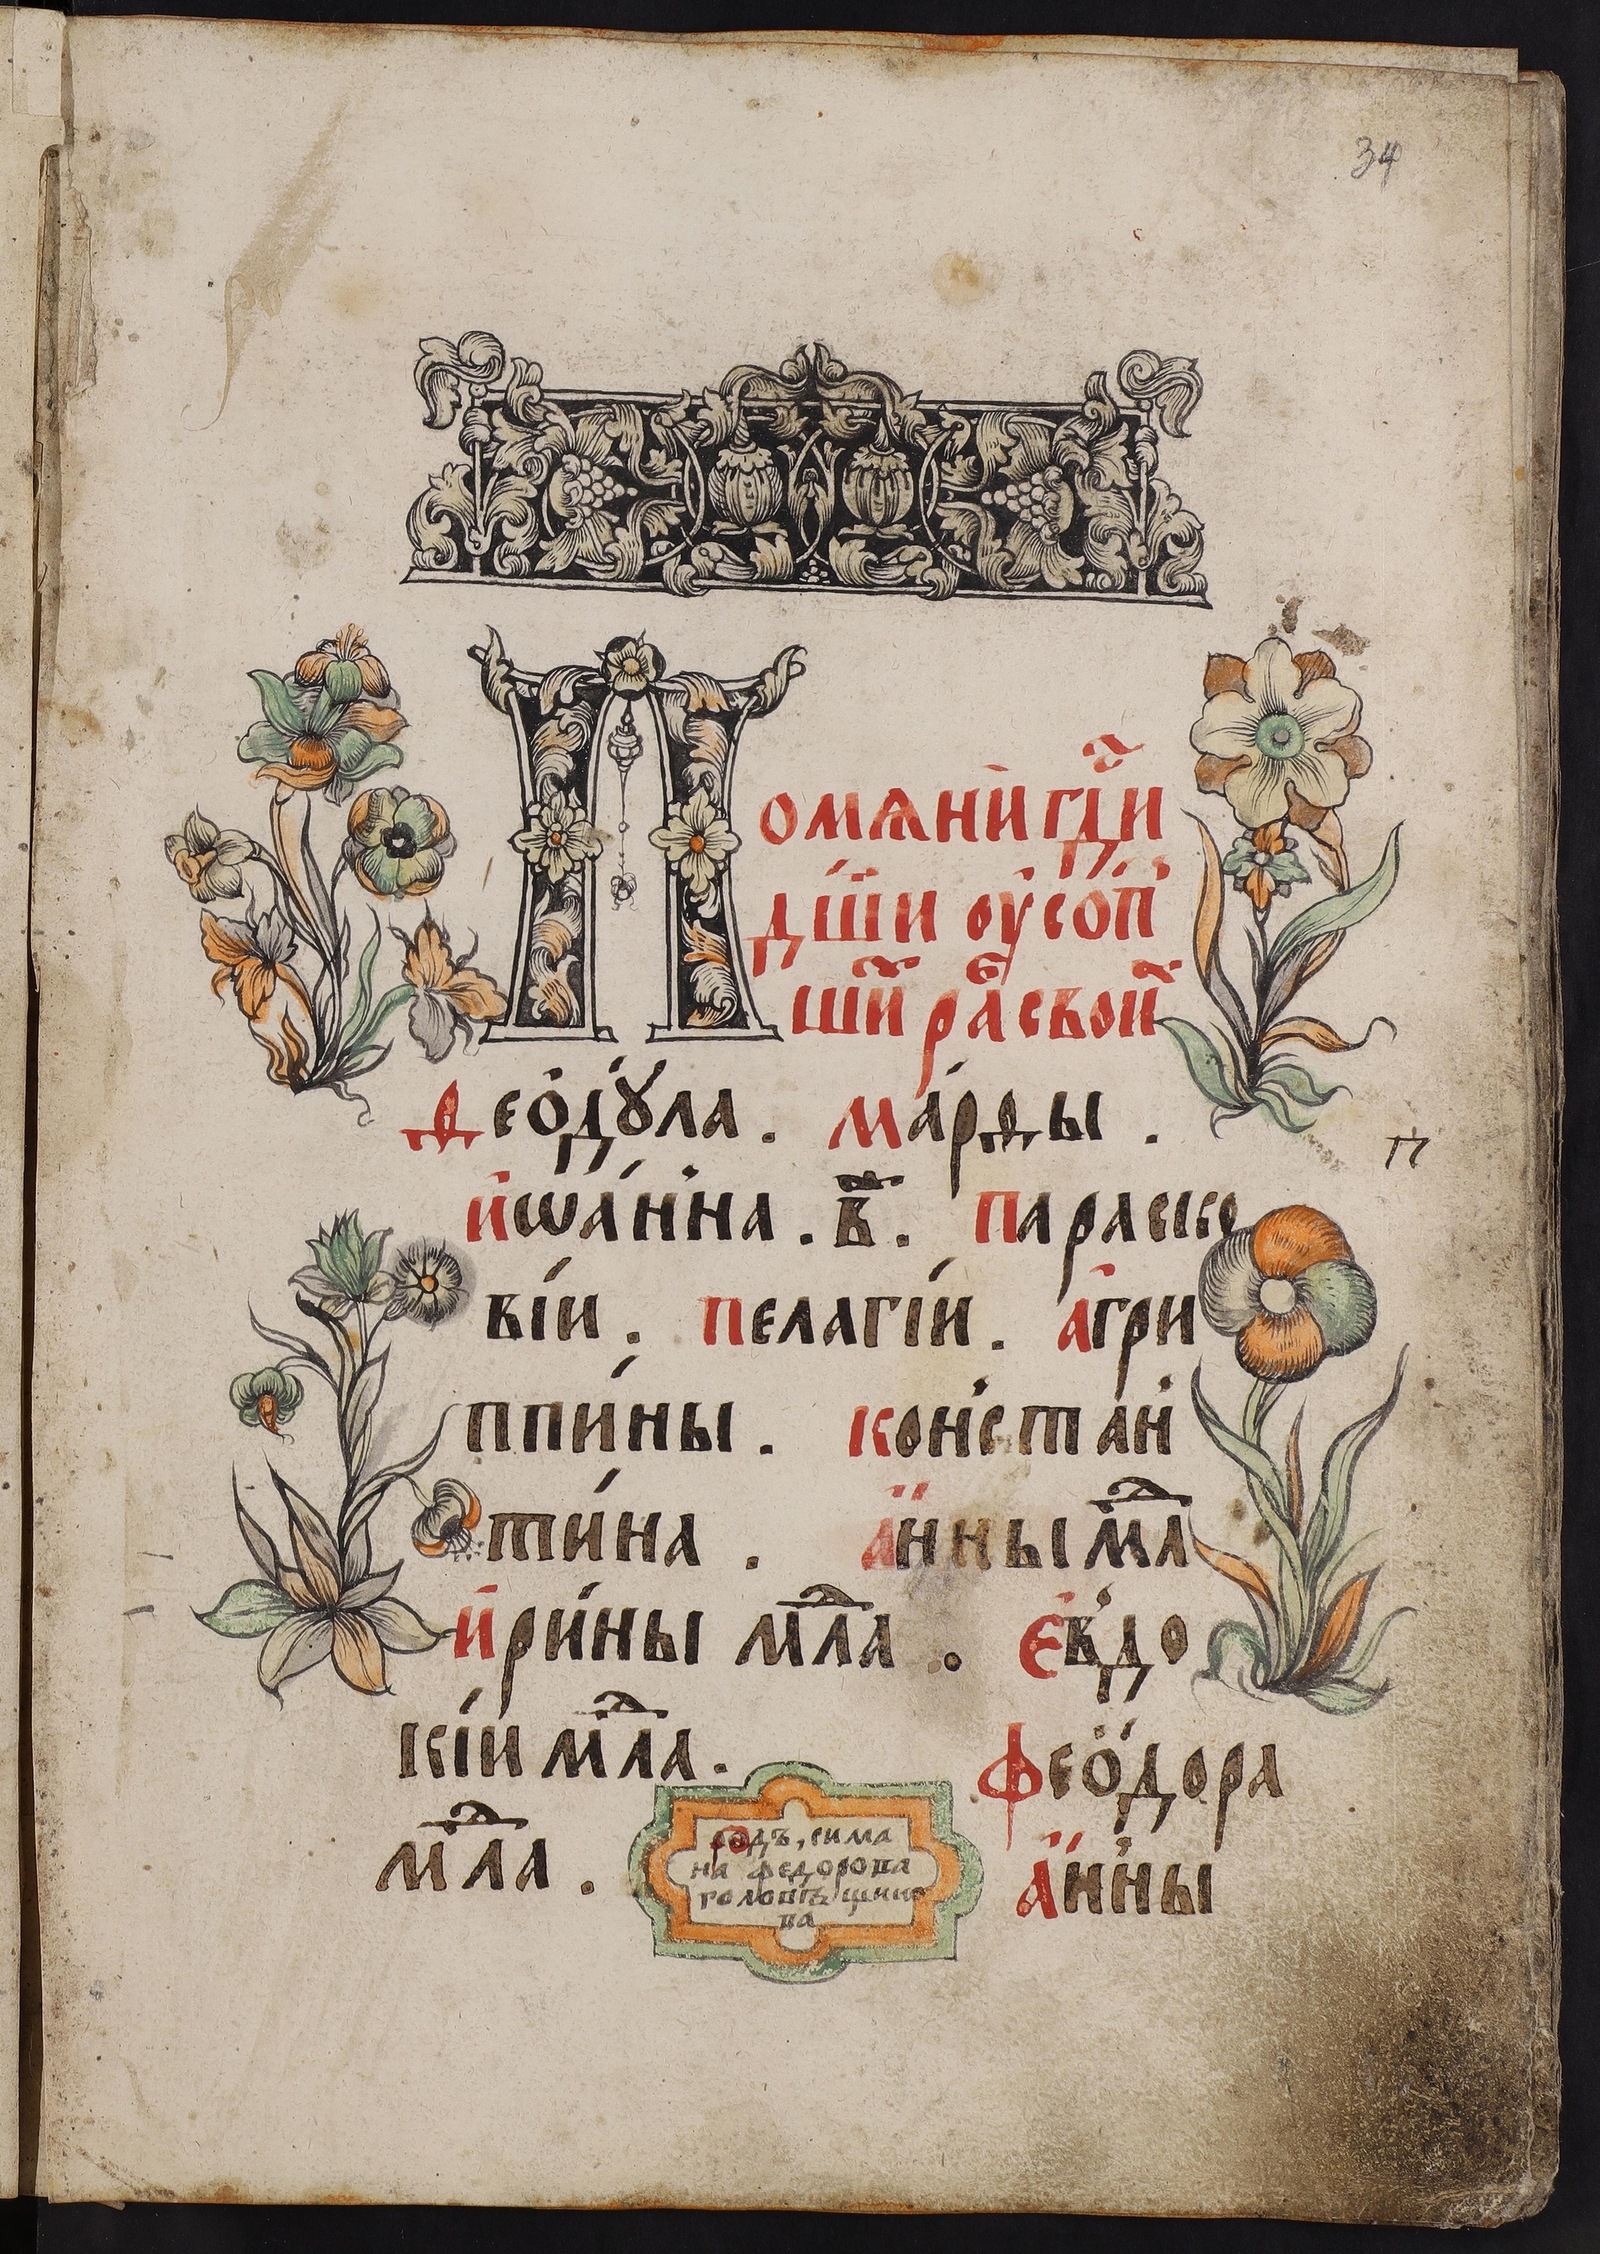 34
Помѧни гдⷭ҇и
дш҃и оусоп
шиⷯ раⷠ своиⷯ
Ѳео́дꙋла . Ма́рѳы .
п
Иѡа́нна . в҃ . Параско
ви́и . Пелагі́и . Агри
ппи́ны . Констан
ти́на . А҆́нны мⷧ҇а
Ири́ны млⷣа . Е҆вдо
кі́и млⷣа . Ѳео́дора
млⷣа . А҆́нны
родъ, сима
на федорова
головѣщико
ва